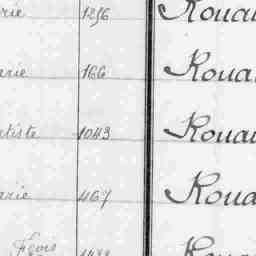 rie 1256 Roua
arie 166 Roua
ptiste 1043 Roua
arie 467 Roua